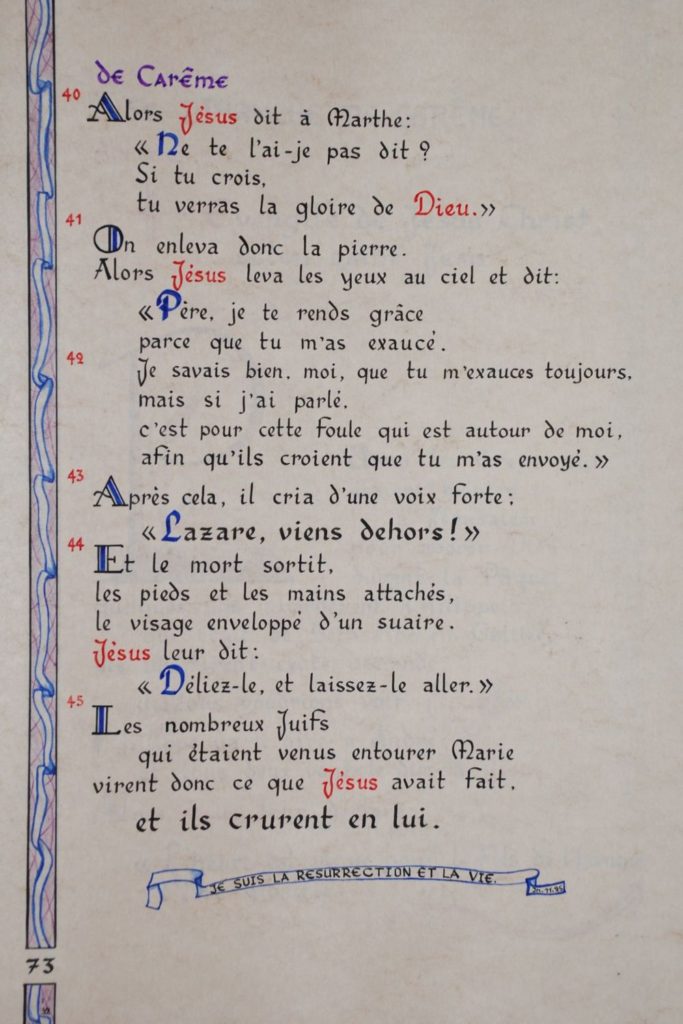 de Carême
40
Alors Jésus dit à Marthe:
« Ne te l'ai-je pas dit ?
Si tu crois,
tu verras la gloire de Dieu.»
41
On enleva donc la pierre.
Alors Jésus leva les yeux au ciel et dit:
«Père, je te rends grâce
parce que tu m'as exaucé.
42
Je savais bien. moi, que tu m'exauces toujours,
mais si j'ai parlé,
c'est pour cette foule qui est autour de moi,
afin qu'ils croient que tu m'as envoyé.»
43
Après cela, il cria d'une voix forte:
«Lazare, viens dehors!»
44
Et le mort sortit,
les pieds et les mains attachés,
le visage enveloppé d'un suaire.
Jésus leur dit:
« Déliez-le, et laissez-le aller.»
45
Les nombreux Juifs
qui étaient venus entourer Marie
virent donc ce que Jésus avait fait,
et ils crurent en lui.
JE SUIS LA RESURRECTION ET LA VIE.
73